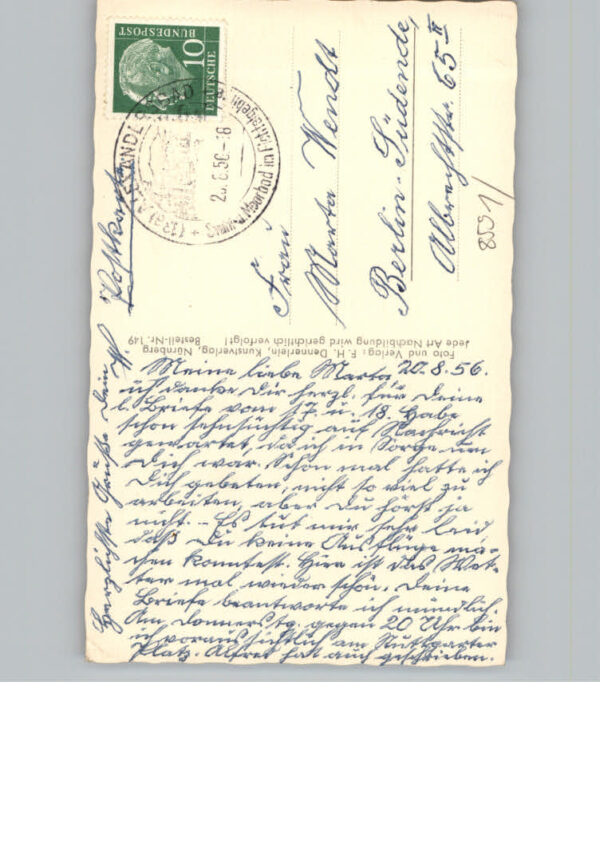 Postkarte
DEUTSCHE
BUNDESPOST
10
(13a) ALEXANDERSBAD
20.8.56-18
Frau
Marta Wendt
Berlin-Südende,
Albrechtstr. 65 II
8591/
Foto und Verlag: F. H. Dennerlein, Kunstverlag, Nürnberg
Jede Art Nachbildung wird gerichtlich verfolgt! Bestell-Nr. 149
Meine liebe Marta 20.8.56.
ich danke Dir herzl. für Deine
l. Briefe vom 17. u. 18. Habe
schon sehnsüchtig auf Nachricht
gewartet, da ich in Sorge um
Dich war. Schon mal hatte ich
Dich gebeten, nicht so viel zu
arbeiten, aber Du hörst ja
nicht. - Es tut mir sehr leid
daß Du keine Ausflüge ma-
chen konntest. Hier ist das Wet-
ter mal wieder schön. Deine
Briefe beantworte ich mündlich.
Am Donnerstg. gegen 20 Uhr bin
ich voraussichtlich am Stuttgarter
Platz. Alfred hat auch geschrieben.
Herzlichste Grüße Dein W.